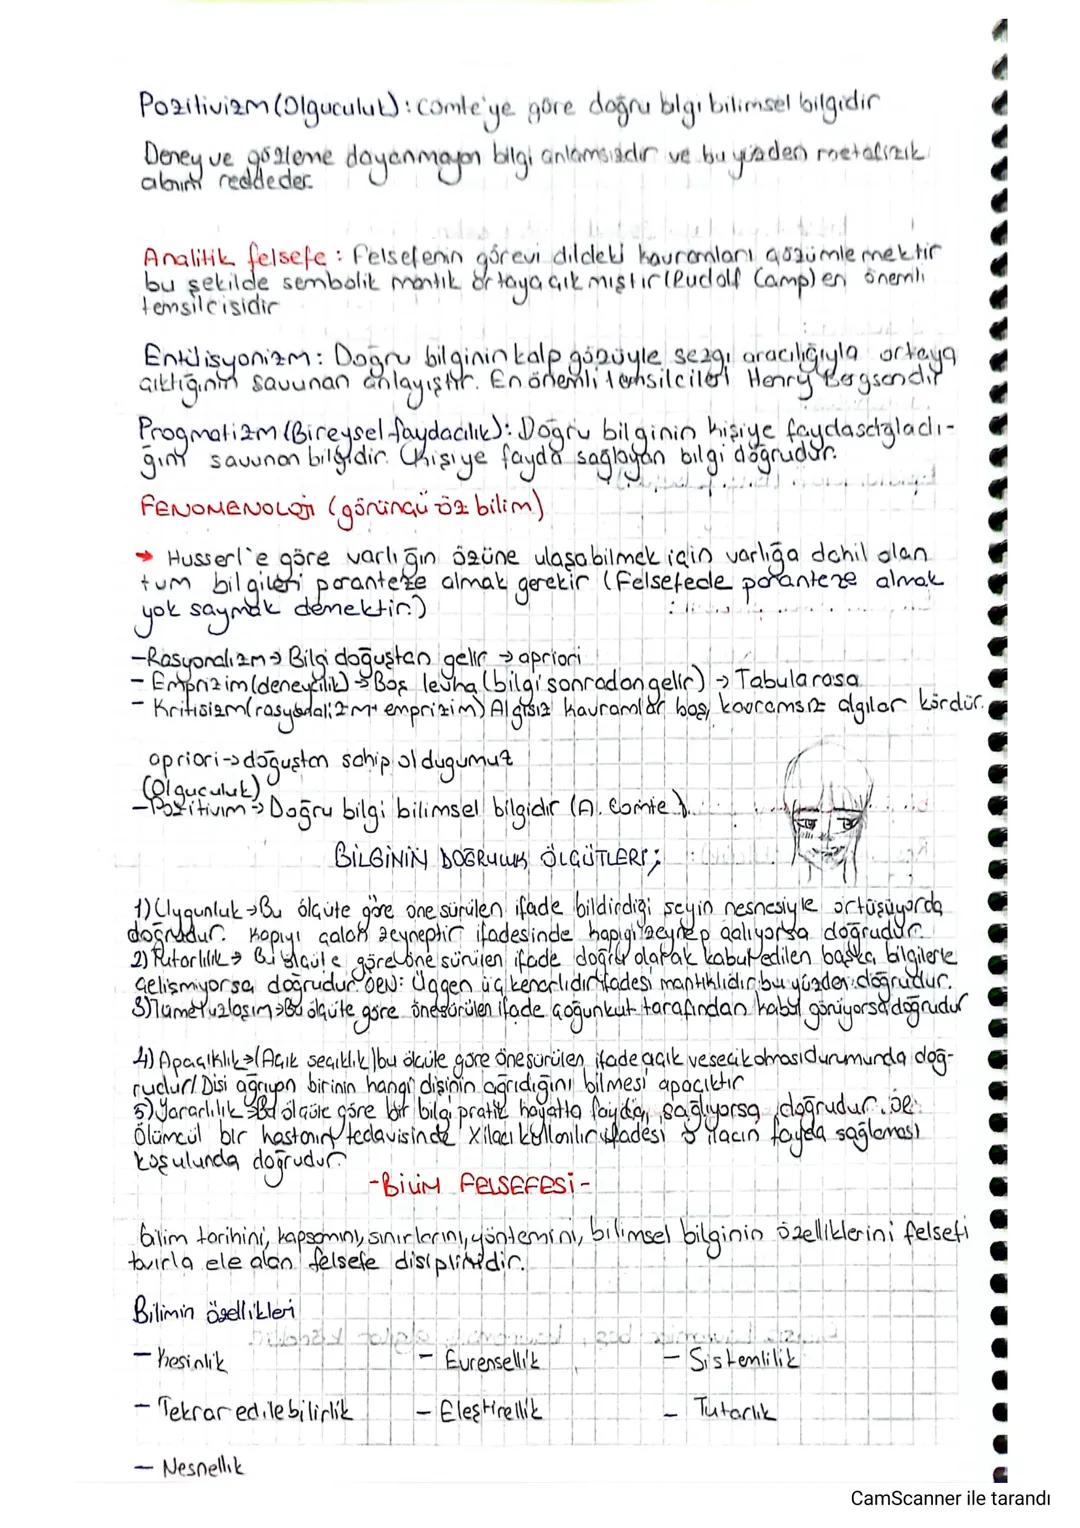 Pozitivizm (Olguculuk): comte'ye göre doğru bilgi bilimsel bilgidir
Deney ve gözleme dayanmayan bilgi anlamsızdır ve bu yüzden metafizik
alanını reddeder.
Analitik felsefe: Felsefenin görevi dildeki kavramları çözümlemektir
bu şekilde sembolik mantık ortaya çıkmıştır (Rudolf Camp) en önemli
temsilcisidir
Entüisyonizm: Doğru bilginin kalp gözüyle sezgi aracılığıyla ortaya
çıktığının savunan anlayıştır. En önemli temsilcileri Henry Bergsondır
Pragmatizm (Bireysel faydacılık): Doğru bilginin kişiye faydasağladı-
ğını savunan bilgidir. (kişiye fayda sağlayan bilgi doğrudur.
FENOMENOLOJİ (görüngü-öz bilim)
→ Husserl'e göre varlığın özüne ulaşabilmek için varlığa dahil olan
tüm bilgileri paranteze almak gerekir (Felsefede paranteze almak
yok saymak demektir.)
-Rasyonalizm → Bilgi doğuştan gelir → apriori
- Emprizim (deneycilik) → Boş levha (bilgi sonradan gelir) → Tabularasa
- Kritisizm (rasyonalizm+ emprizim) Algısız kavramlar boş, kavramsız algılar kördür.
apriori → doğuştan sahip oldugumuz
(Olguculuk)
-Pozitivim → Doğru bilgi bilimsel bilgidir (A. Comte)
BİLGİNİN DOĞRULUK ÖLÇÜTLERİ;
1) Uygunluk → Bu ölçüte göre öne sürülen ifade bildirdiği şeyin nesnesiyle örtüşüyorda
doğrudur. Kapıyı çalan zeyneptir ifadesinde kapıyı zeynep çalıyorsa doğrudur.
2) Tutarlılık → Bu ölçüte göre öne sürülen ifade doğru olarak kabul edilen başka bilgilerle
çelişmiyorsa doğrudur. ÖRN: Üçgen üç kenarlıdır ifadesi mantıklıdır bu yüzden doğrudur.
3) Tümel uzlaşım → Bu ölçüte göre öne sürülen ifade çoğunluk tarafından kabul görüyorsa doğrudur
4) Apaçıklık → (Açık seçiklik) bu ölçüte göre öne sürülen ifade açık ve seçik olması durumunda doğ-
rudur/ Dişi ağrıyan birinin hangi dişinin ağrıdığını bilmesi apaçıktır
5) Yararlılık → Bu ölçüte göre bir bilgi pratik hayatta fayda sağlıyorsa doğrudur. ÖR:
Ölümcül bir hastanın tedavisinde X ilacı kullanılır ifadesi o ilacın fayda sağlaması
koşulunda doğrudur.
-BİLİM FELSEFESİ-
Bilim tarihini, kapsamını, sınırlarını, yöntemini, bilimsel bilginin özelliklerini felsefi
tavırla ele alan felsefe disiplinidir.
Bilimin özellikleri
- Kesinlik - Evrensellik - Sistemlilik
- Tekrar edilebilirlik - Eleştirellik - Tutarlık
- Nesnellik
CamScanner ile tarandı